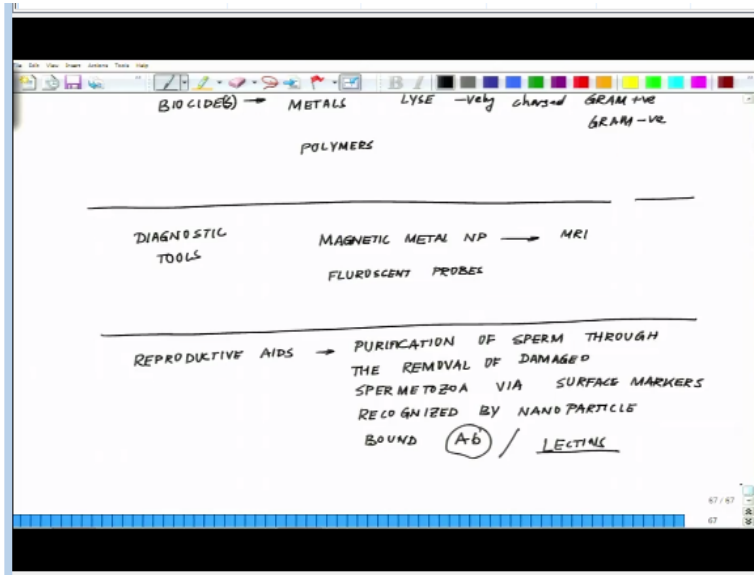 File Edit View Insert Actions Tools Help
BIOCIDE(S) → METALS LYSE -vely charged GRAM +ve
GRAM -ve
POLYMERS
DIAGNOSTIC
TOOLS
MAGNETIC METAL NP → MRI
FLUROSCENT PROBES
REPRODUCTIVE AIDS → PURIFICATION OF SPERM THROUGH
THE REMOVAL OF DAMAGED
SPERMETOZOA VIA SURFACE MARKERS
RECOGNIZED BY NANOPARTICLE
BOUND Ab / LECTINS
67 / 67
67